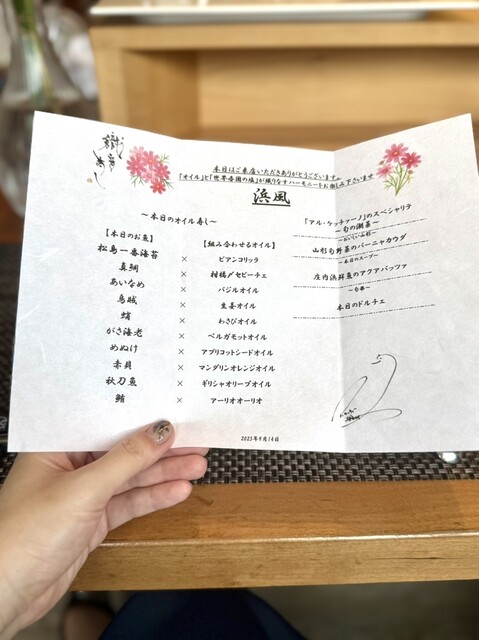 本日はご来店いただきありがとうございます。
「オイル」と「世界各国の塩」が織りなすハーモニーをお楽しみ下さいませ
浜風
～本日のオイル寿し～
【本日のお魚】 【組み合わせるオイル】
松島一番海苔 × ビアンコリッラ
真鯛 × 柑橘〆セビーチェ
あいなめ × バジルオイル
烏賊 × 生姜オイル
蛸 × わさびオイル
がさ海老 × ベルガモットオイル
めぬけ × アプリコットシードオイル
赤貝 × マンダリンオレンジオイル
秋刀魚 × ギリシャオリーブオイル
鮪 × アーリオオーリオ
「アル・ケッチァーノ」のスペシャリテ
～旬の潮菜～
山形旬野菜のバーニャカウダ
～本日のスープ～
庄内浜鮮魚のアクアパッツァ
本日のドルチェ
2025年9月14日